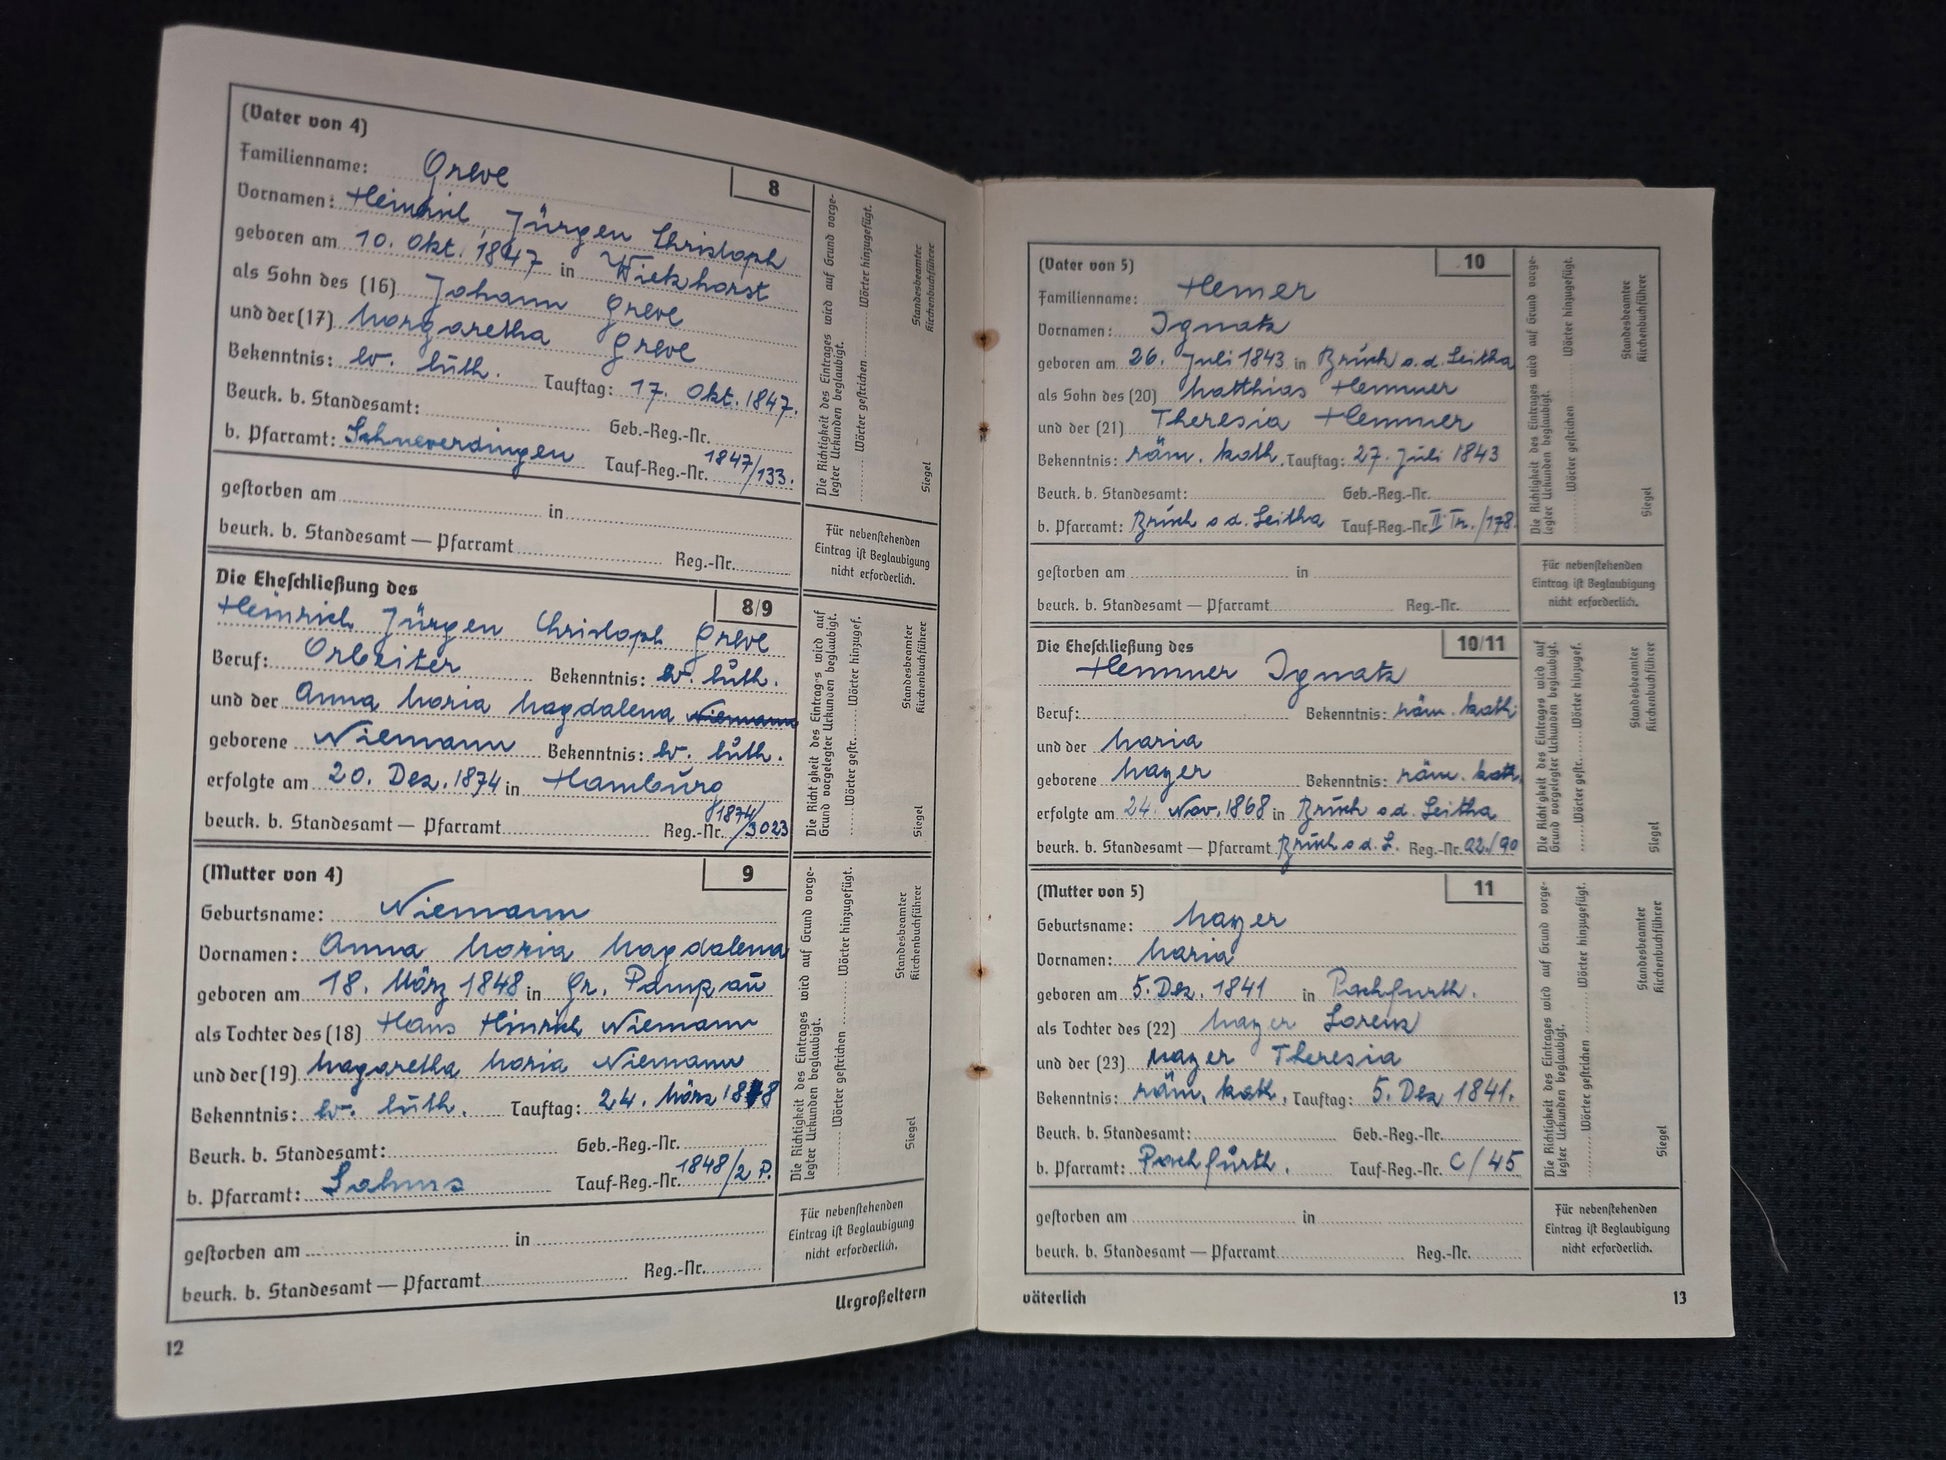 (Vater von 4)
8
Familienname: Greve
Vornamen: Heinrich, Jürgen Christoph
geboren am 10. Okt. 1847 in Wiekhorst
als Sohn des (16) Johann Greve
und der (17) Margaretha Greve
Bekenntnis: ev. luth. Tauftag: 17. Okt. 1847.
Beurk. b. Standesamt: Geb.-Reg.-Nr.
b. Pfarramt: Schneverdingen Tauf-Reg.-Nr. 1847/133.
gestorben am in
beurk. b. Standesamt — Pfarramt Reg.-Nr.
Die Eheschließung des
8/9
Heinrich Jürgen Christoph Greve
Beruf: Arbeiter Bekenntnis: ev. luth.
und der Anna Maria Magdalena Niemann
geborene Niemann Bekenntnis: ev. luth.
erfolgte am 20. Dez. 1874 in Hamburg
beurk. b. Standesamt — Pfarramt Reg.-Nr. 1874/3023
(Mutter von 4)
9
Geburtsname: Niemann
Vornamen: Anna Maria Magdalena
geboren am 18. März 1848 in Gr. Pampau
als Tochter des (18) Hans Hinrich Niemann
und der (19) Magaretha Maria Niemann
Bekenntnis: ev. luth. Tauftag: 24. März 1848
Beurk. b. Standesamt: Geb.-Reg.-Nr.
b. Pfarramt: Sahms Tauf-Reg.-Nr. 1848/2 P.
gestorben am in
beurk. b. Standesamt — Pfarramt Reg.-Nr.
Die Richtigkeit des Eintrages wird auf Grund vorge-
legter Urkunden beglaubigt.
Wörter gestrichen Wörter hinzugefügt.
Standesbeamter
Kirchenbuchführer
Siegel
Für nebenstehenden
Eintrag ist Beglaubigung
nicht erforderlich.
Die Richtigkeit des Eintrags wird auf
Grund vorgelegter Urkunden beglaubigt.
Wörter gestr. Wörter hinzugef.
Standesbeamter
Kirchenbuchführer
Siegel
Die Richtigkeit des Eintrages wird auf Grund vorge-
legter Urkunden beglaubigt.
Wörter gestrichen Wörter hinzugefügt.
Standesbeamter
Kirchenbuchführer
Siegel
Für nebenstehenden
Eintrag ist Beglaubigung
nicht erforderlich.
Urgroßeltern
12
(Vater von 5)
10
Familienname: Hemer
Vornamen: Ignatz
geboren am 26. Juli 1843 in Bruck a. d. Leitha
als Sohn des (20) Matthias Hemmer
und der (21) Theresia Hemmer
Bekenntnis: röm. kath. Tauftag: 27. Juli 1843
Beurk. b. Standesamt: Geb.-Reg.-Nr.
b. Pfarramt: Bruck a d. Leitha Tauf-Reg.-Nr. II Tr. /178.
gestorben am in
beurk. b. Standesamt — Pfarramt Reg.-Nr.
Die Eheschließung des
10/11
Hemmer Ignatz
Beruf: Bekenntnis: röm. kath.
und der Maria
geborene Mayer Bekenntnis: röm. kath.
erfolgte am 24. Nov. 1868 in Bruck a d. Leitha
beurk. b. Standesamt — Pfarramt Bruck a d. L. Reg.-Nr. 22./90
(Mutter von 5)
11
Geburtsname: Mayer
Vornamen: Maria
geboren am 5. Dez. 1841 in Pachfurth.
als Tochter des (22) Mayer Lorenz
und der (23) Mayer Theresia
Bekenntnis: röm. kath. Tauftag: 5. Dez 1841.
Beurk. b. Standesamt: Geb.-Reg.-Nr.
b. Pfarramt: Pachfurth. Tauf-Reg.-Nr. C/45
gestorben am in
beurk. b. Standesamt — Pfarramt Reg.-Nr.
Die Richtigkeit des Eintrages wird auf Grund vorge-
legter Urkunden beglaubigt.
Wörter gestrichen Wörter hinzugefügt.
Standesbeamter
Kirchenbuchführer
Siegel
Für nebenstehenden
Eintrag ist Beglaubigung
nicht erforderlich.
Die Richtigkeit des Eintrages wird auf
Grund vorgelegter Urkunden beglaubigt.
Wörter gestr. Wörter hinzugef.
Standesbeamter
Kirchenbuchführer
Siegel
Die Richtigkeit des Eintrages wird auf Grund vorge-
legter Urkunden beglaubigt.
Wörter gestrichen Wörter hinzugefügt.
Standesbeamter
Kirchenbuchführer
Siegel
Für nebenstehenden
Eintrag ist Beglaubigung
nicht erforderlich.
väterlich
13